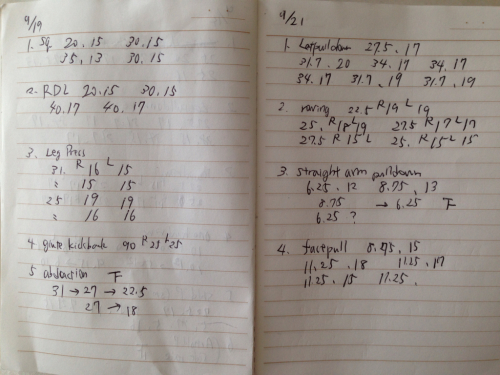 9/19
1. SQ 20.15 30.15
35.13 30.15
2. RDL 20.15 30.15
40.17 40.17
3. Leg Press
31. R16 L15
" 15 15
25 19 19
" 16 16
4. glute kickback 90 R25 L25
5 abduction F
31 → 27 → 22.5
27 → 18
9/21
1. Latpulldown 27.5. 17
31.7. 20 34. 17 34. 17
34.17 31.7. 19 31.7. 19
2. 22.5 R19 L19
25. R18 L19 27.5 R17 L17
27.5 R15 L 25. R15 L 15
3. straight arm pulldown
6.25. 12 8.75. 13
8.75 → 6.25 F
6.25 ?
4. facepull 8.75. 15
11.25. 18 11.25. 17
11.25. 15 11.25.